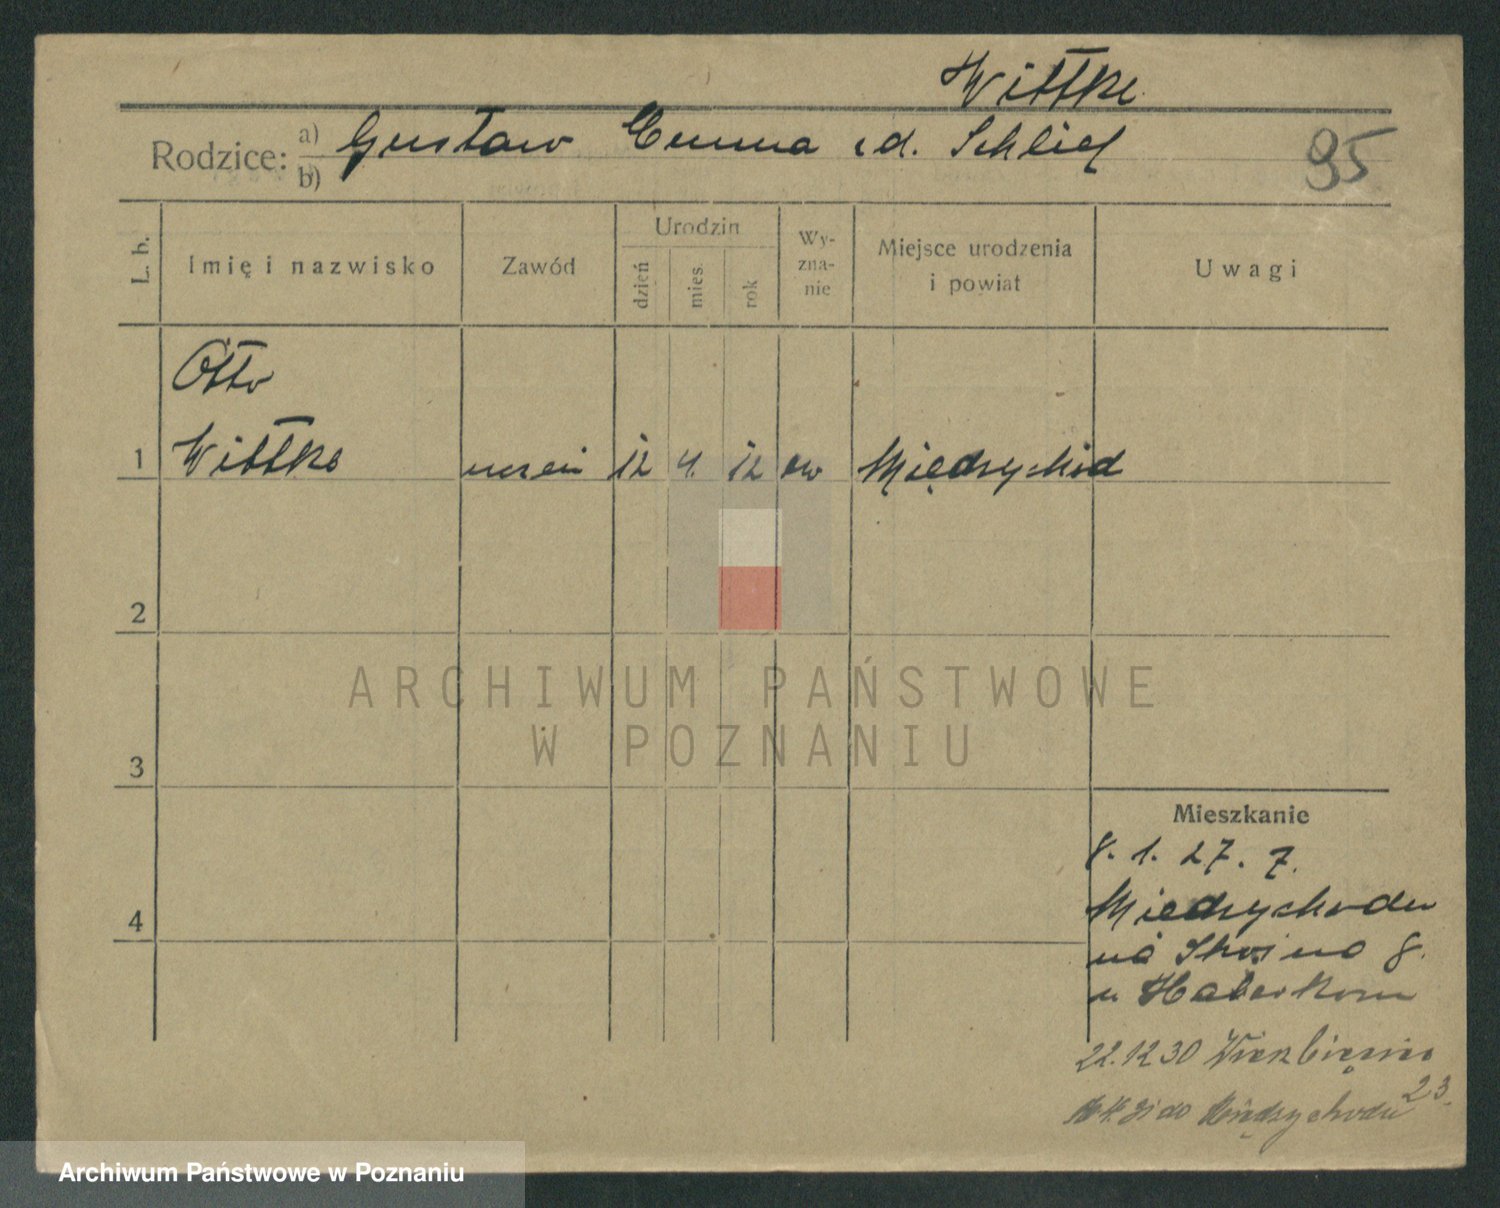 Wittke
Rodzice: a) Gustaw Emma z d. Schlief
b)
95
L. b.
Imię i nazwisko
Zawód
Urodzin
dzień
mies.
rok
Wy-
zna-
nie
Miejsce urodzenia
i powiat
Uwagi
Otto
1 Wittke uczeń 12 4. 12 ew Międzychód
2
3
4
ARCHIWUM PAŃSTWOWE
W POZNANIU
Mieszkanie
8. 1. 27. z.
Międzychodu
na 8.
u Haberkorn
22.12 30 Wierzbięcice
23.
31 do Międzychodu
Archiwum Państwowe w Poznaniu